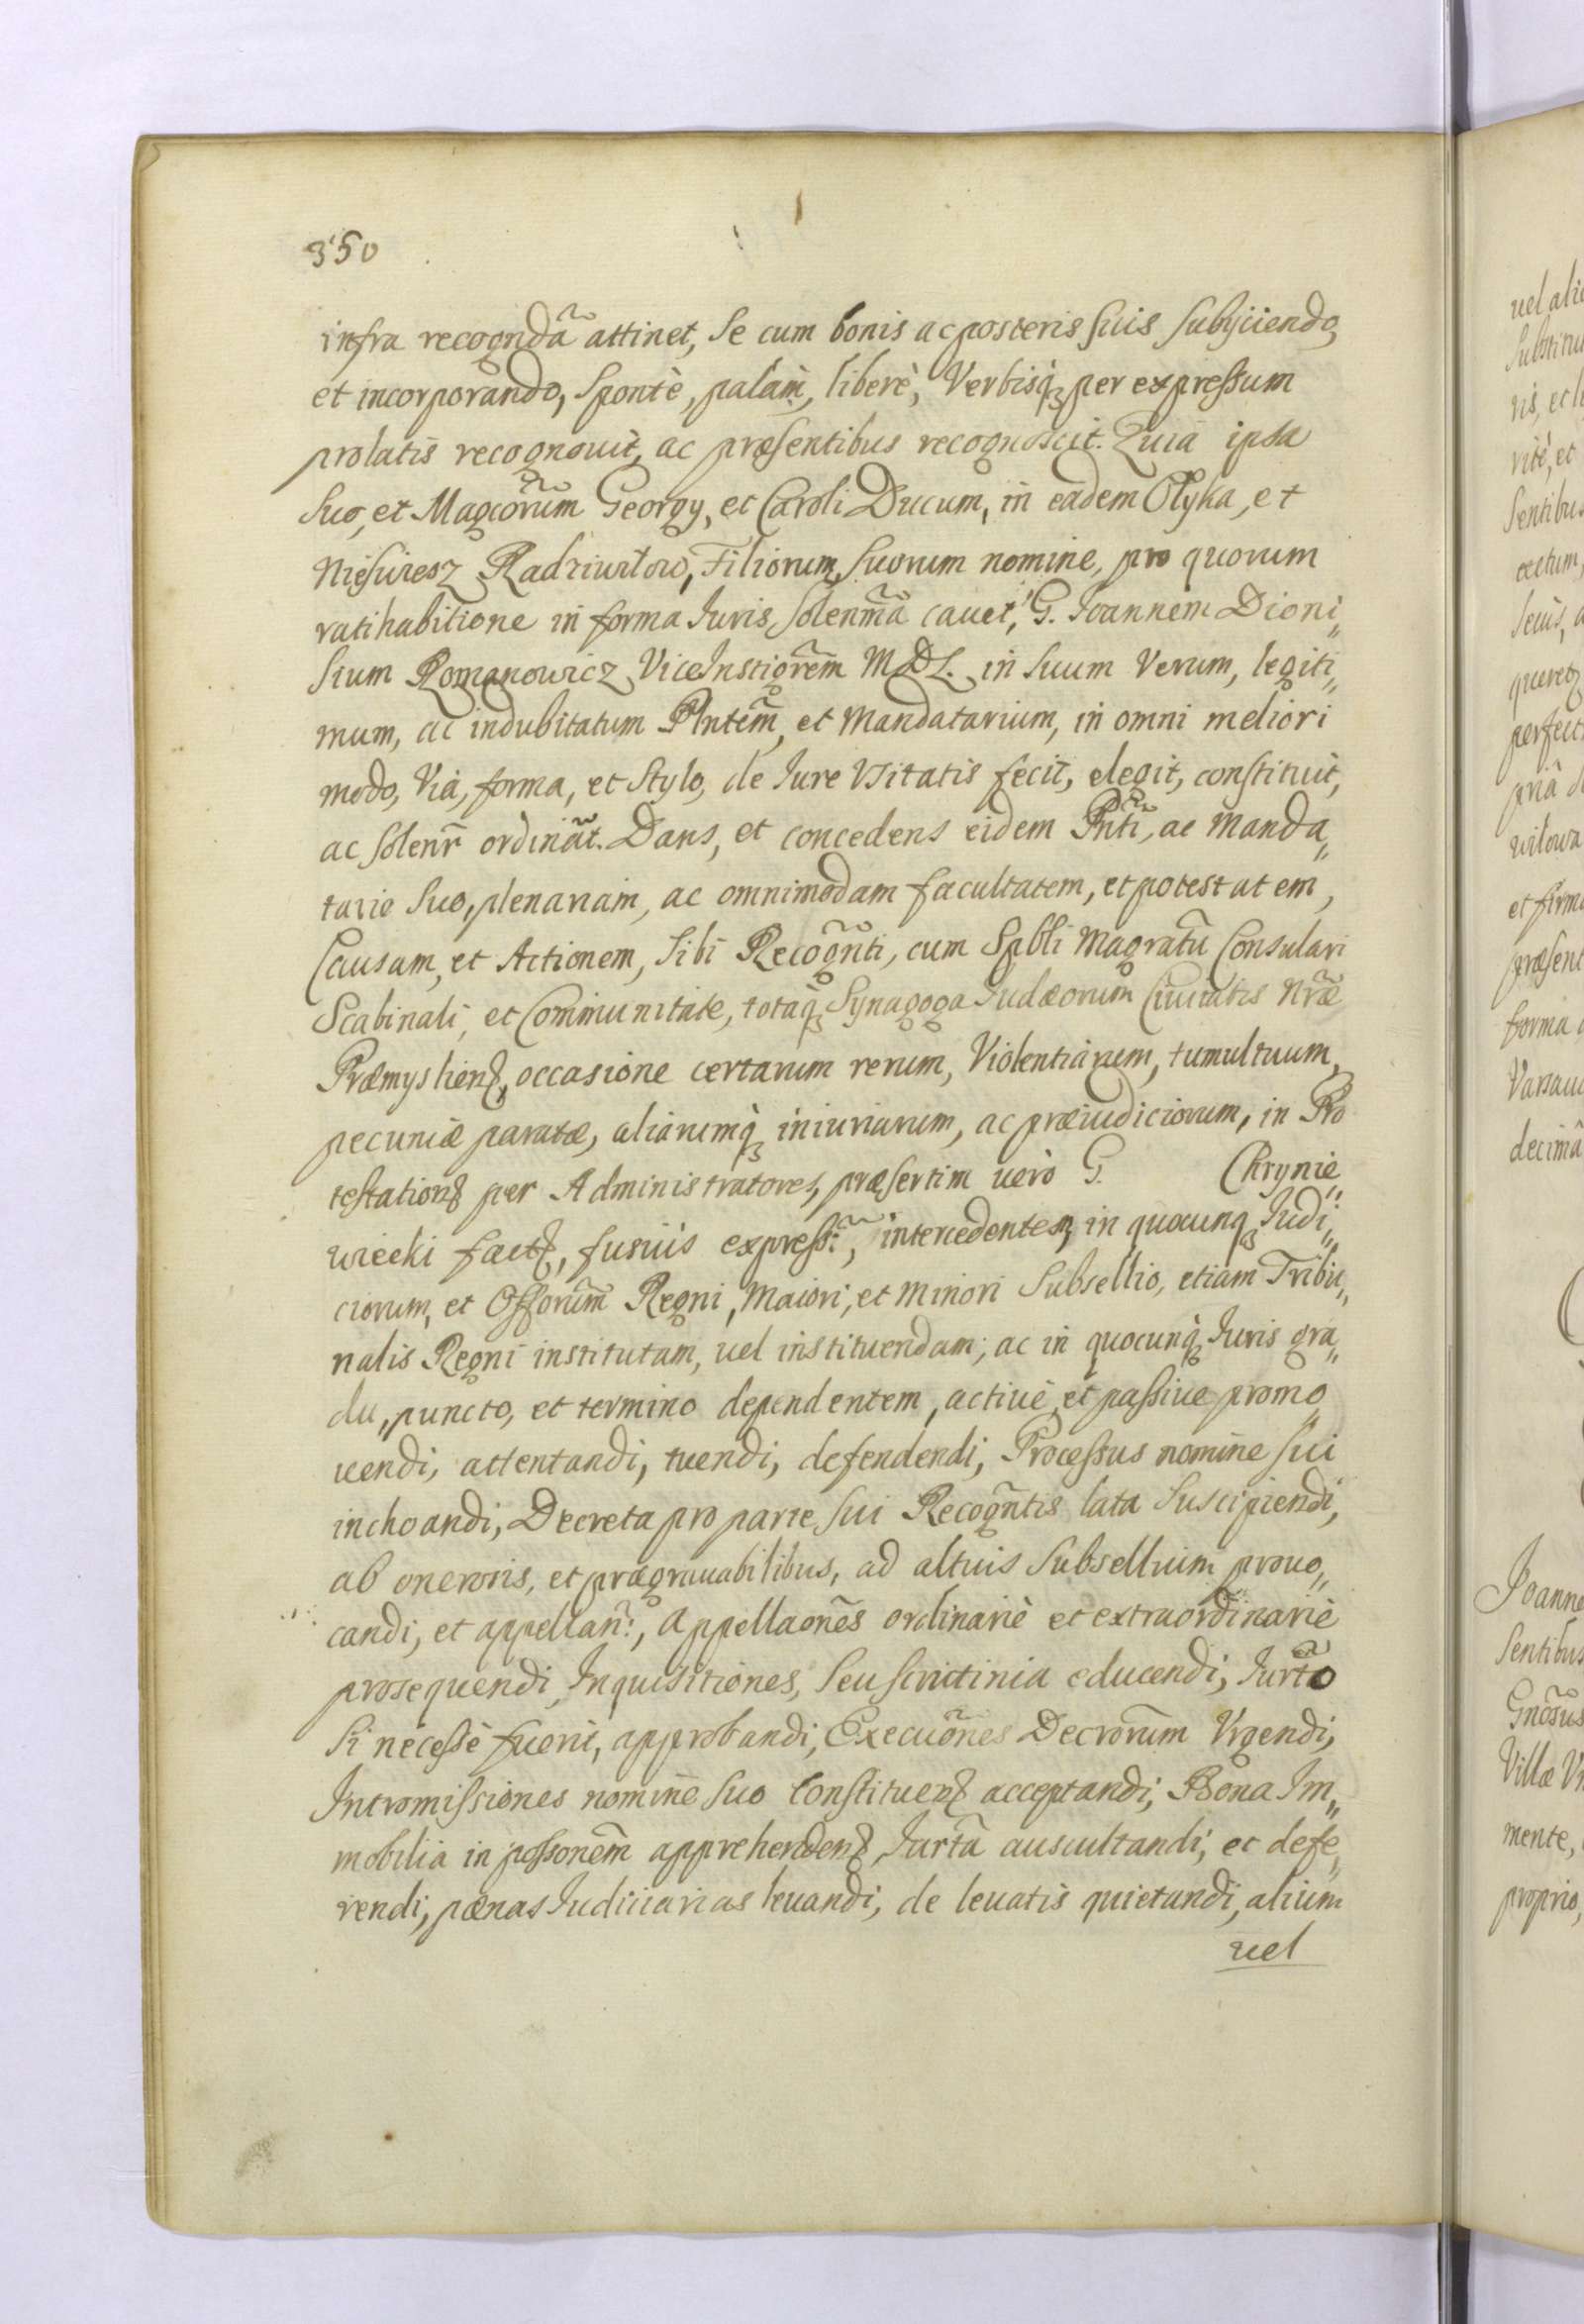 350
infra recogndã attinet, se cum bonis ac posteris suis subijciendo,
et incorporando, Spontè, palàm, liberè, Verbisq; per expressum
prolatis recognouit, ac præsentibus recognoscit. Quia ipsa
suo, et Magcorũm Georgy, et Caroli Ducum, in eadem Olyka, et
Nieświesz Radziwiłow, Filiorum suorum nomine, pro quorum
ratihabitione in forma Iuris solenmã cauet, G. Ioannem Dioni„
sium Romanowicz ViceInstigrẽm M.D.L. in suum Verum, legiti„
mum, ac indubitatum Plntẽm, et Mandatarium, in omni meliori
modo, Via, forma, et Stylo, de Iure Vsitatis fecit, elegit, constituit,
ac solenr̃ ordinãt. Dans, et concedens eidem Plnti, ac Manda„
tario suo, plenariam, ac omnimodam facultatem, et potestatem,
Causam, et Actionem, sibi Recogñti, cum Spbli Magratũ Consulari
Scabinali, et Communitate, totaq; Synagoga Iudæorum Ciuitatis Nræ̃
Præmysliens, occasione certarum rerum, Violentiarum, tumultuum,
pecuniæ paratæ, aliarumq; iniuriarum, ac præiudiciorum, in Pro
testations per Administratores, præsertim uerò G. Chrynie„
wiecki facts, fusiùs expressĩ, intercedentes, in quocunq; Iudi„
ciorum, et Offorũm Regni, Maiori, et Minori Subsellio, etiam Tribu„
nalis Regni institutam, uel instituendam; ac in quocunq; Iuris gra„
du, puncto, et termino dependentem, actiuè, et passiue promo„
uendi, attentandi, tuendi, defendendi, Processus nomine sui
inchoandi, Decreta pro parte sui Recogñtis lata suscipiendi,
ab onerosis, et prægrauabilibus, ad altius Subsellium prouo„
candi, et appellañ:, Appellaonẽs ordinariè et extraordinariè
prosequendi, Inquisitiones, seu scrutinia educendi, Iurtõ
si necessè fuerit, approbandi, Execuõnes Decrorũm Vrgendi,
Intromissiones nomine suo Constituens acceptandi, Bona Im„
mobilia in possonẽm apprehendens, Iurtã auscultandi, et defe„
rendi, pœnas Iudiciarias leuandi, de leuatis quietandi, alium
uel